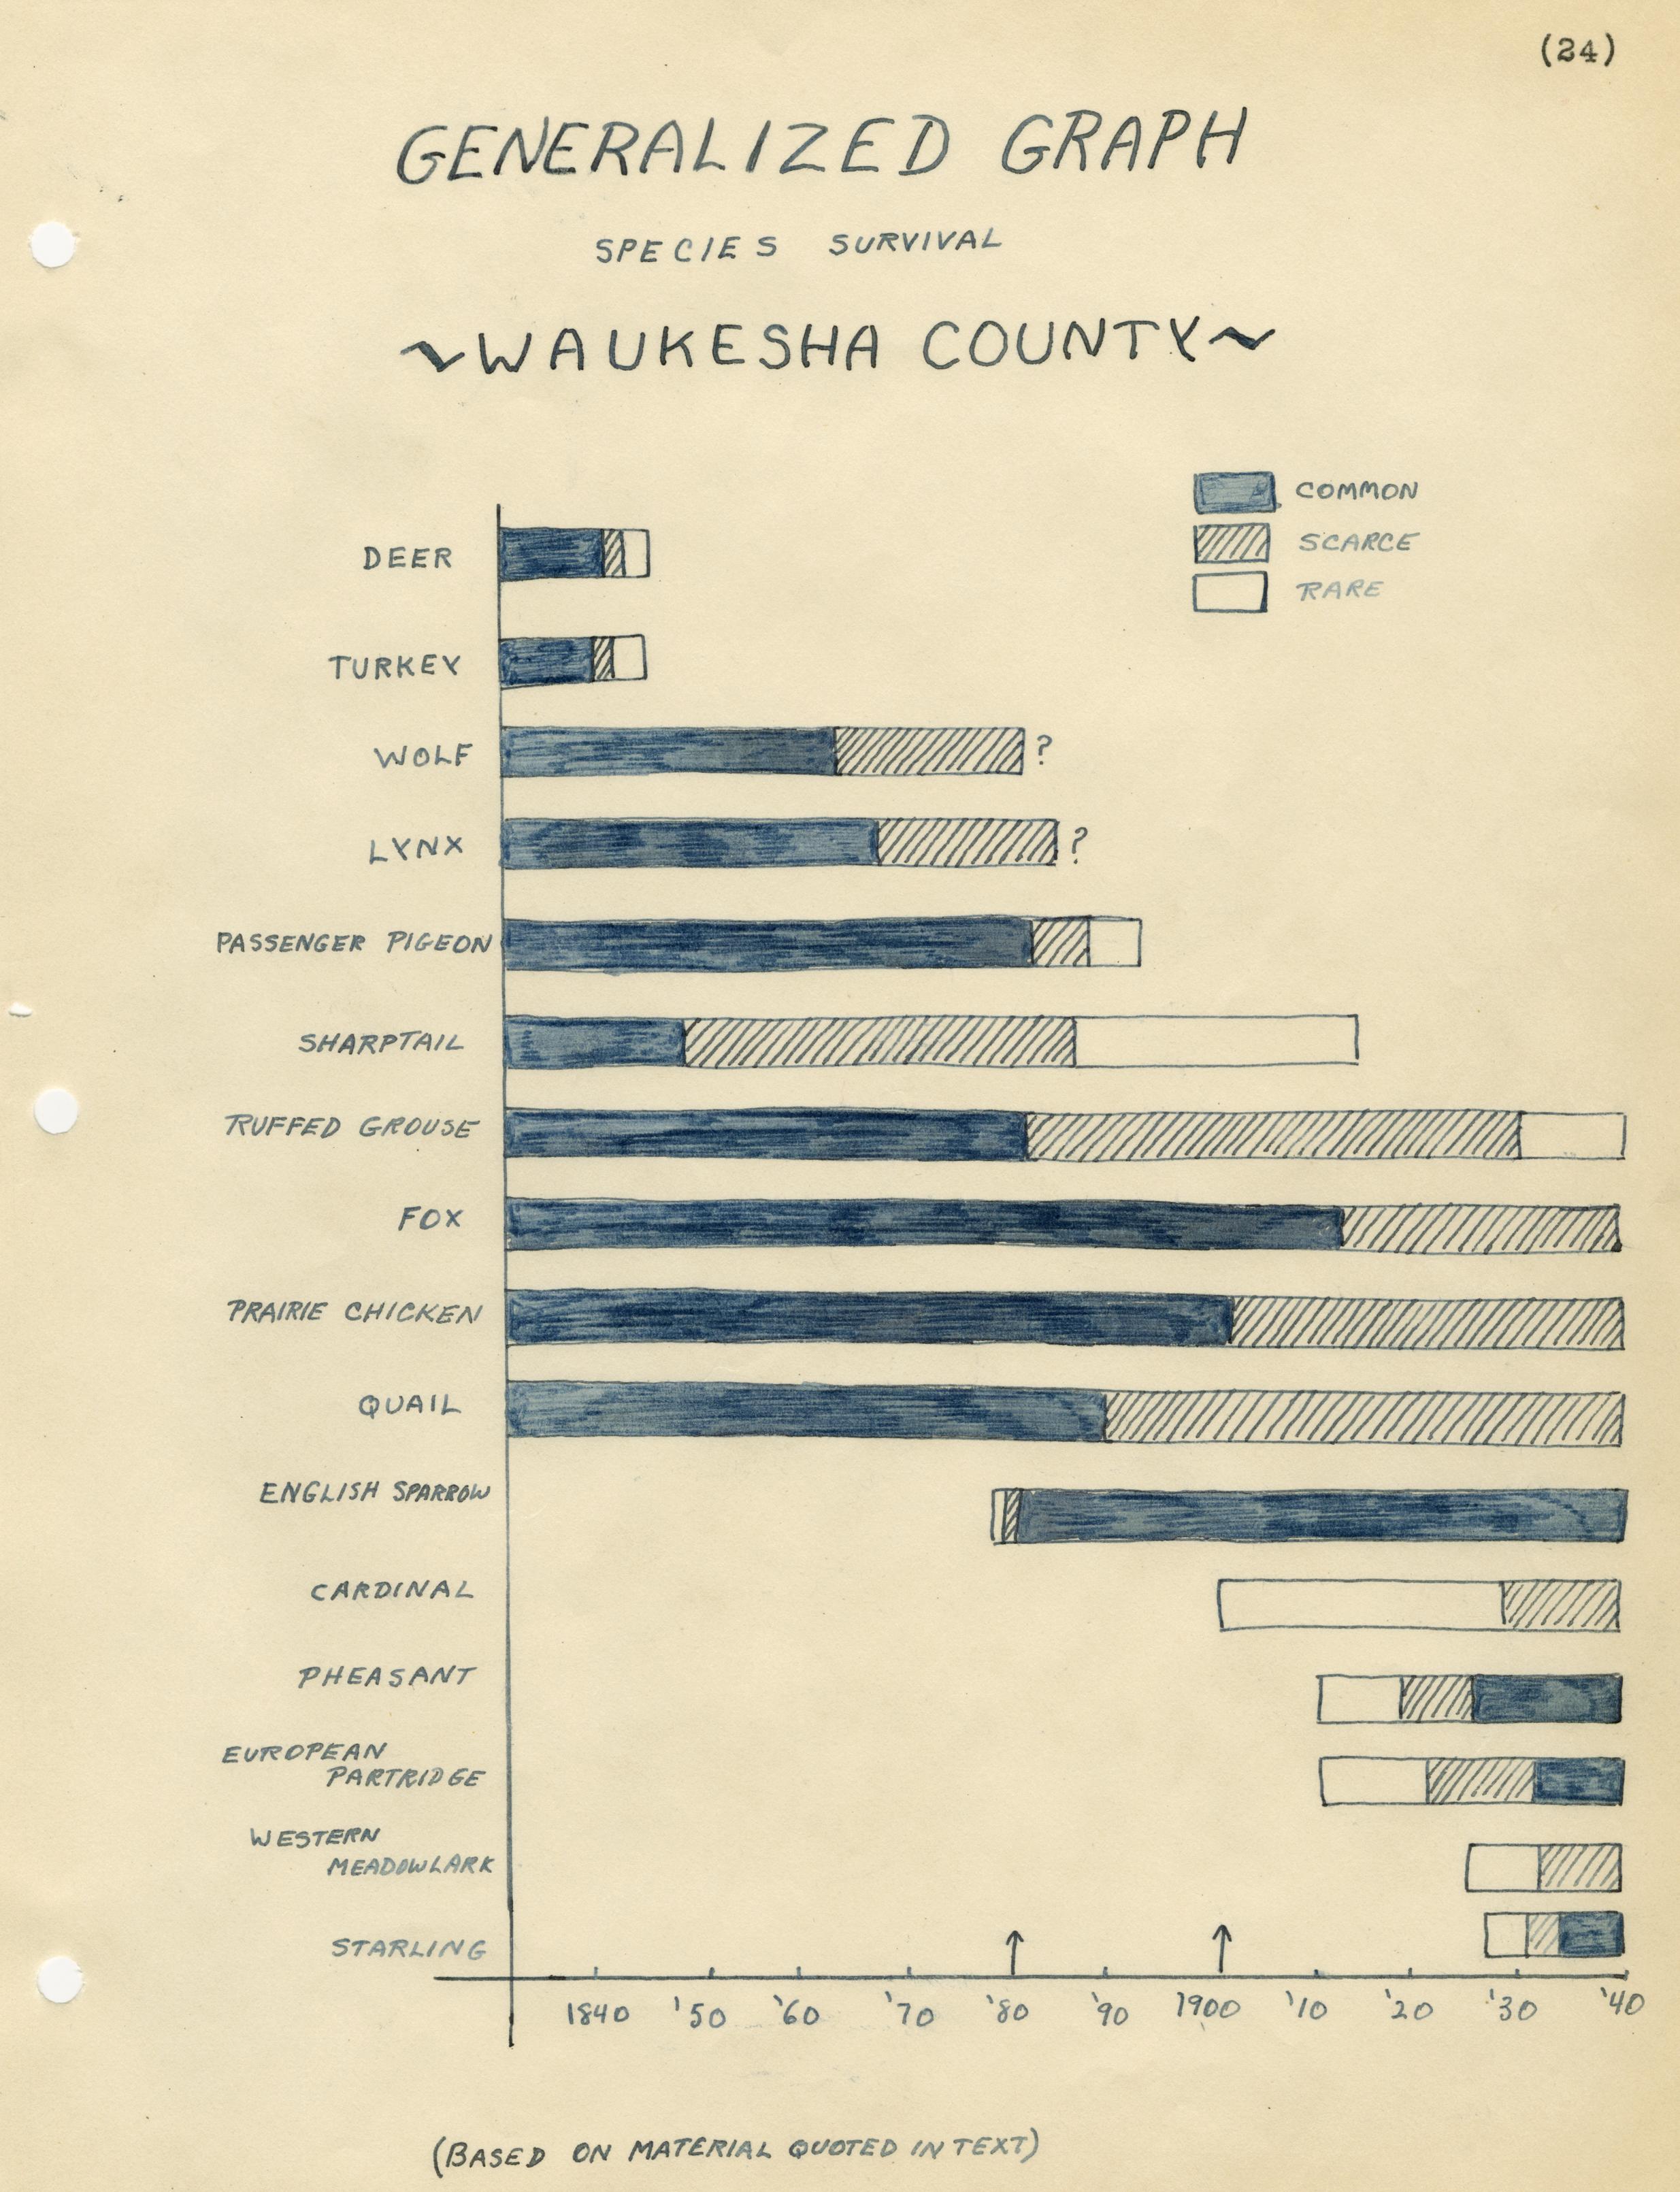 (24)
GENERALIZED GRAPH
SPECIES SURVIVAL
~WAUKESHA COUNTY~
COMMON
SCARCE
RARE
DEER
TURKEY
WOLF ?
LYNX ?
PASSENGER PIGEON
SHARPTAIL
RUFFED GROUSE
FOX
PRAIRIE CHICKEN
QUAIL
ENGLISH SPARROW
CARDINAL
PHEASANT
EUROPEAN
PARTRIDGE
WESTERN
MEADOWLARK
STARLING
1840 '50 '60 '70 '80 '90 1900 '10 '20 '30 '40
(BASED ON MATERIAL QUOTED IN TEXT)